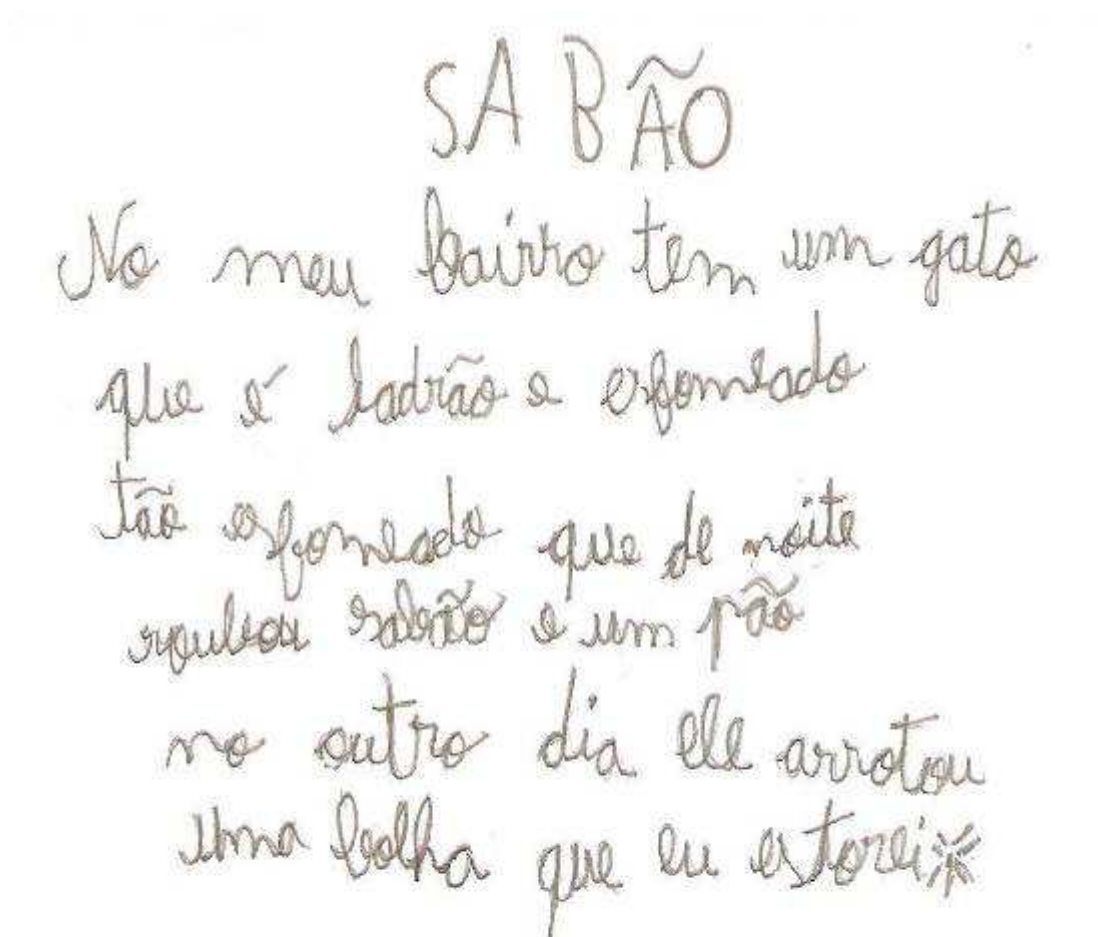 SABÃO
No meu bairro tem um gato
que é ladrão e esfomeado
tão esfomeado que de noite
roubou sabão e um pão
no outro dia ele arrotou
uma bolha que eu estorei